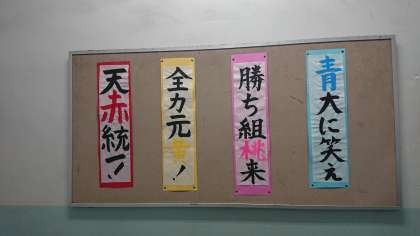 青大に笑え
勝ち組桃来
全力元黄!
天赤統一!